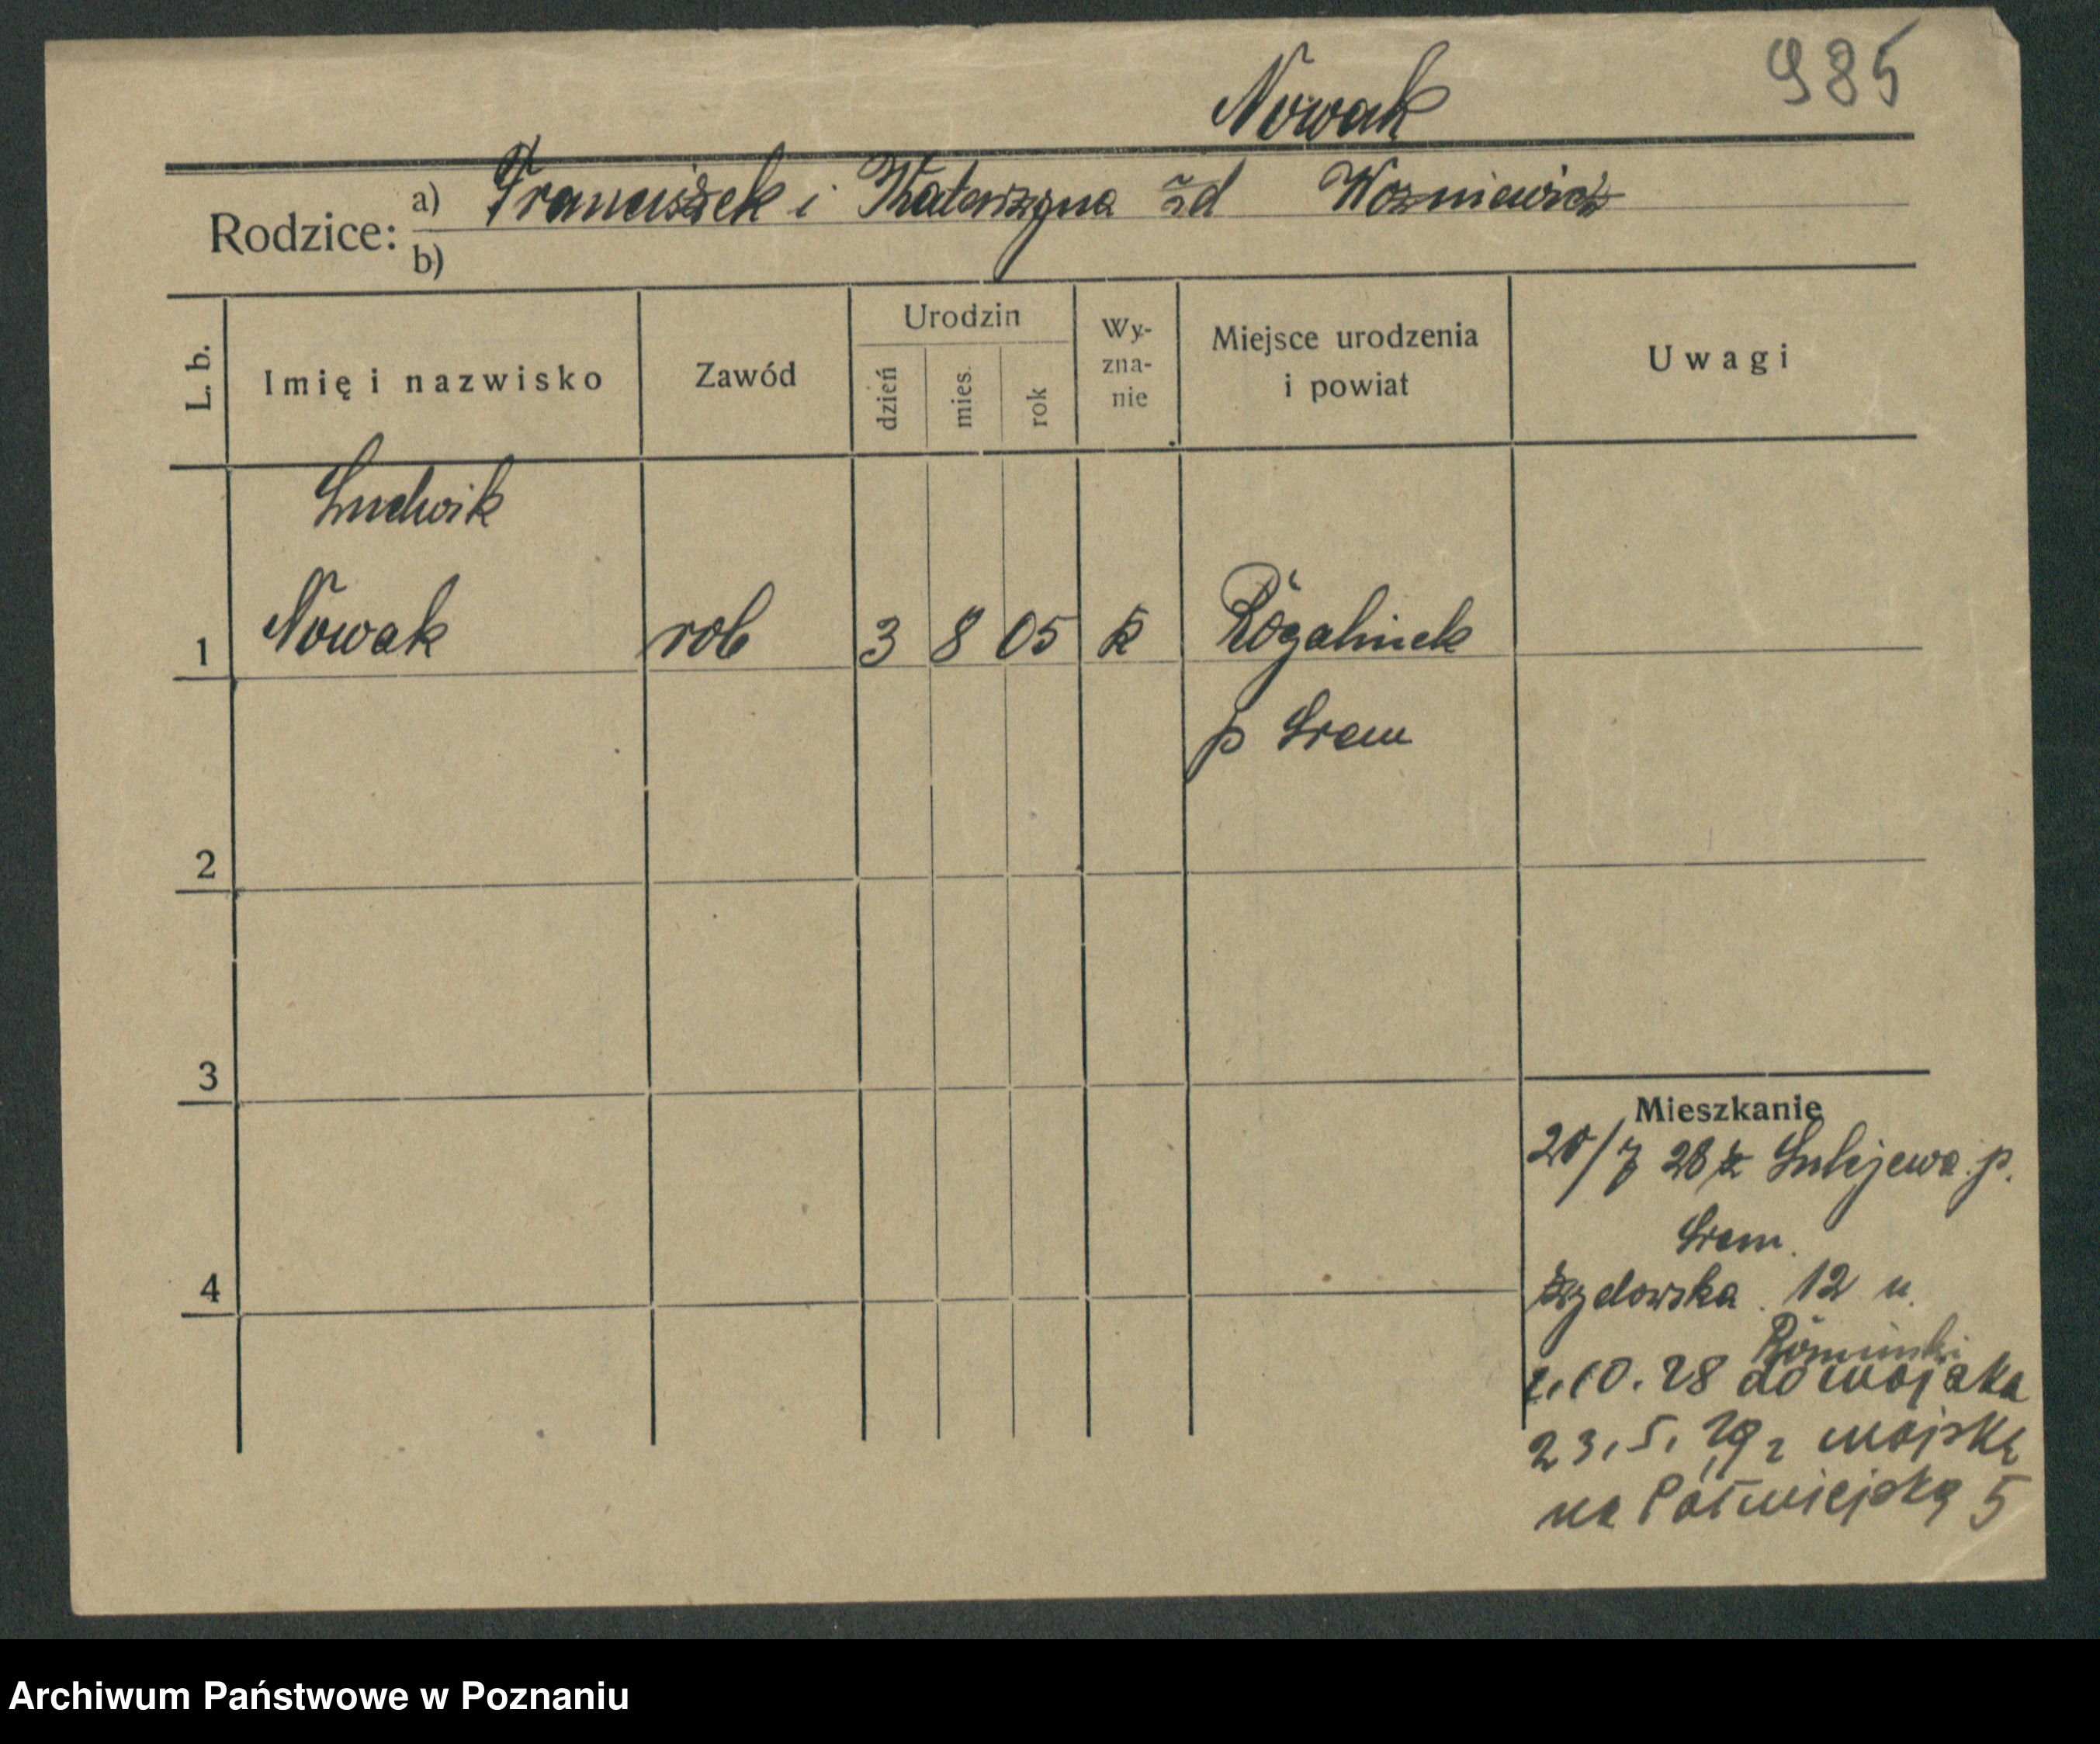 985
Nowak
Rodzice: a) Franciszek i Katarzyna zd Wozniewicz
b)
L. b.
Imię i nazwisko
Zawód
Urodzin
dzień
mies.
rok
Wy-
zna-
nie
Miejsce urodzenia
i powiat
Uwagi
Ludwik
1 Nowak rob 3 8 05 k Rogalinek
p Srem
2
3
4
Mieszkanie
20/7 28 z p.
Srem.
Żydowska 12 u.
1.10.28 do wojska
23.5.29 z wojska
na Półwiejską 5
Archiwum Państwowe w Poznaniu